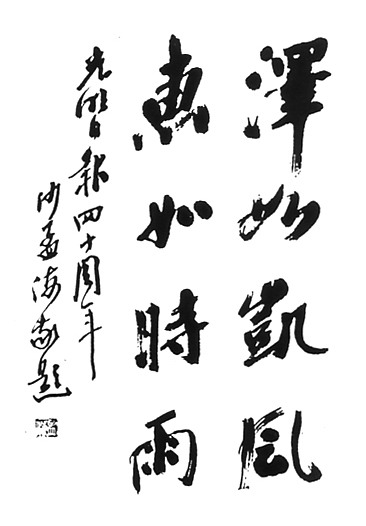 澤如凱風
惠如時雨
光明日報四十周年
沙孟海敬題